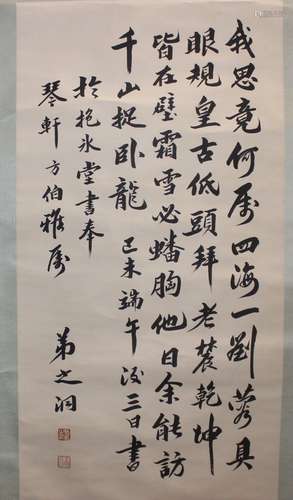 我思竟何属四海一刘蓉具
眼规皇古低頭拜老農乾坤
皆在壁霜雪必蟠胸他日余能訪
千山捉卧龍 己未端午後三日書
於抱冰堂書奉
琴軒方伯雅属
弟之洞